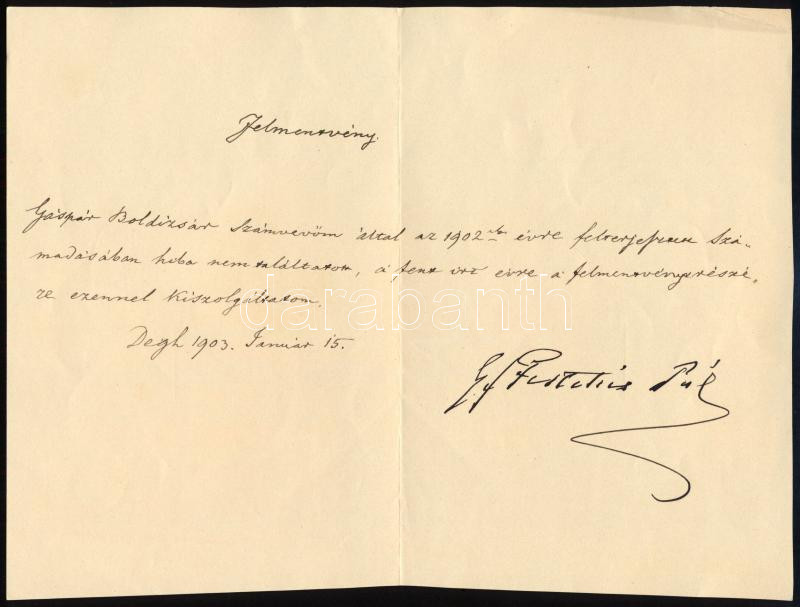 Felmentvény.
Gáspár Boldizsár Számvevőm által az 1902 ik évre felterjesztett Szá-
madásában hiba nem találtatott, a fent írt évre a felmentvényt részé-
re ezennel Kiszolgáltatom.
Degh 1903. Január 15.
Gf Festetics Pál
darabanth